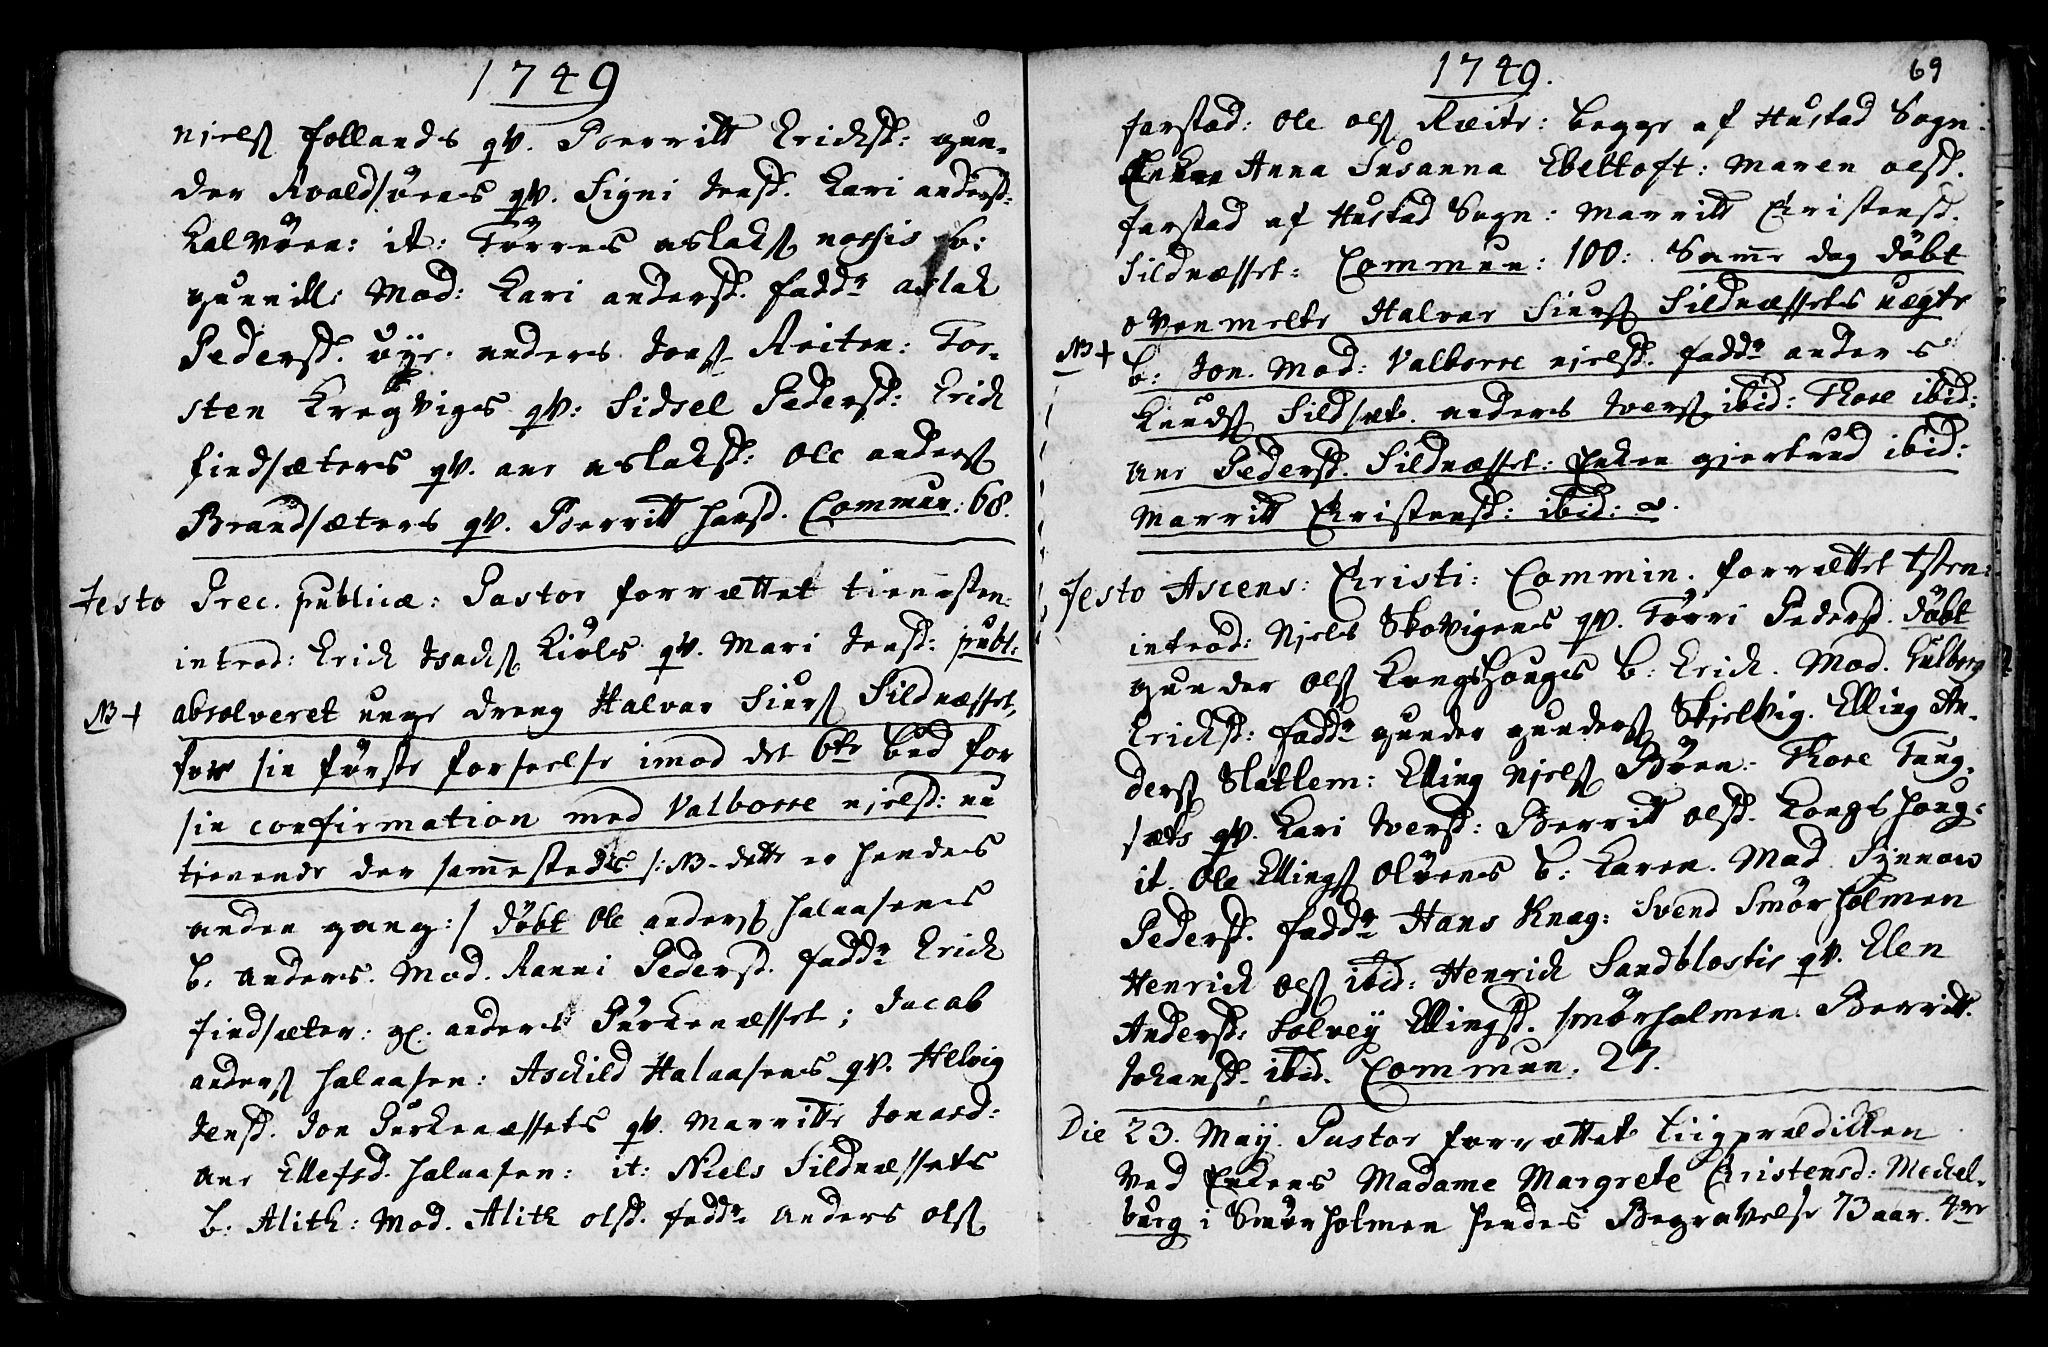 1749
Njels Follands qv. Berritt Ericksd: gun-
der Roaldsøens qv. Signi Jensd. Kari andersd:
Kalvøen: it: Torres aslaks b:
gunnild: Mod: Kari andersd. fadd: aslak
Pedersd. øye: anders Jons Reiten: Tor-
sten Kregviges qv: Sidsel Pedersd: Erick
findsæters qv. ane aslaksd: Ole anders
Brandsæters qv. Berritt hansd. Commun: 68.
Festo Prec. publicæ: Pastor forrættet tienesten:
introd: Erick Isacks Kiøls qv. Mari Jensd: publ:
NB + absolveret unge dreng Halvar Siurs Sildnæsset,
for sin første forseelse imod det 6te bud for
sin confirmation med Valborre njelsd: nu
tienende der sammesteds /: NB dette er hendes
anden gang :/ døbt Ole anders halaasens
b: anders. Mod. Ranni Pedersd. fadd: Erick
findsæter: gl. anders Purkenæsset; Jacob
anders halaasen: Aschild Halaasens qv. Helvig
Jensd. Jon Purkenæssets qv. Marritte Jonasd:
ane Ellefsd. halaasen: it: Niels Sildnæssets
b: Alith: Mod. Alith olsd. fadd: anders ols
1749. 69
farstad: Ole ols Reite: begge af Hustad Sogn.
Enken Anna Susanna Ebeltoft: Maren olsd.
farstad af Hustad Sogn: Marritt Christensd.
Sildnæsset: Commun: 100: Samme dag døbt
ovenmelte Halvar Siurs Sildnæssets uægte
NB + b: Jon. Mod: Valborre njelsd. fadd: anders
Knuds Sildnæs. anders Ivers ibid: Thore ibid:
ane Pedersd. Sildnæsset: Enken gjertrud ibid:
Marritt Christensd: ibid:
Festo Ascens: Christi: Commin. forrættet tsten:
introd: Njels Skovigens qv. Torri Pedersd. døbt
gunder ols Kongshougs b: Erick. Mod. Gulborg
Ericksd: fadd: gunder gunders Skjelvig. Elling An-
ders Slatlem: Elling Njels Bøen: Thore Tung-
sæts qv. Kari Iversd: Berritt olsd. Kongshoug:
it. Ole Ellings Oløens b: Karen. Mod Synnow
Pedersd. fadd: Hans Knag: Svend Smørholmen
Henrick ols ibid: Henrick Sandblostis qv. Elen
Andersd: Solvey Ellingsd. Smørholmen: Berritt
Johansd. ibid. Commun: 27.
Die 23. May. Pastor forrættet Liigprædicken
ved Enkens Madame Margrete Christensd: Meckel-
burg i Smørholmen hendes Begravelse 73 aar. 4re